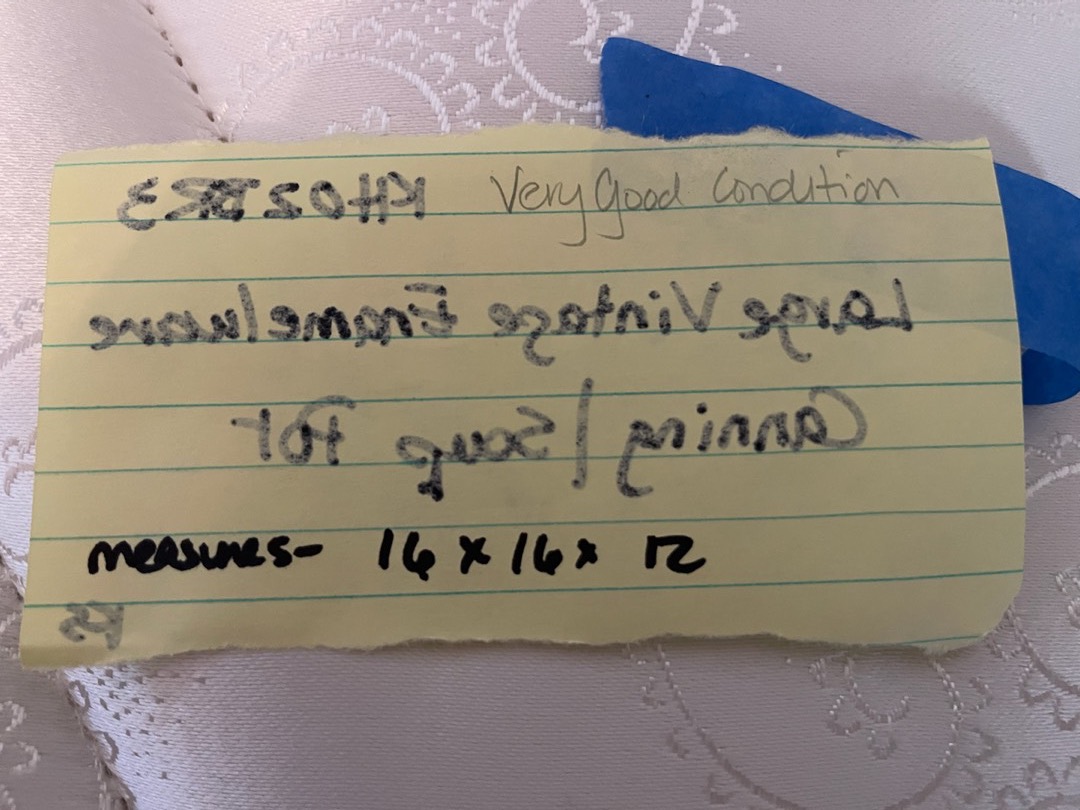 Very Good Condition
Large Vintage Enamelware
Canning / Soup Pot
measures- 16 x 16 x 12